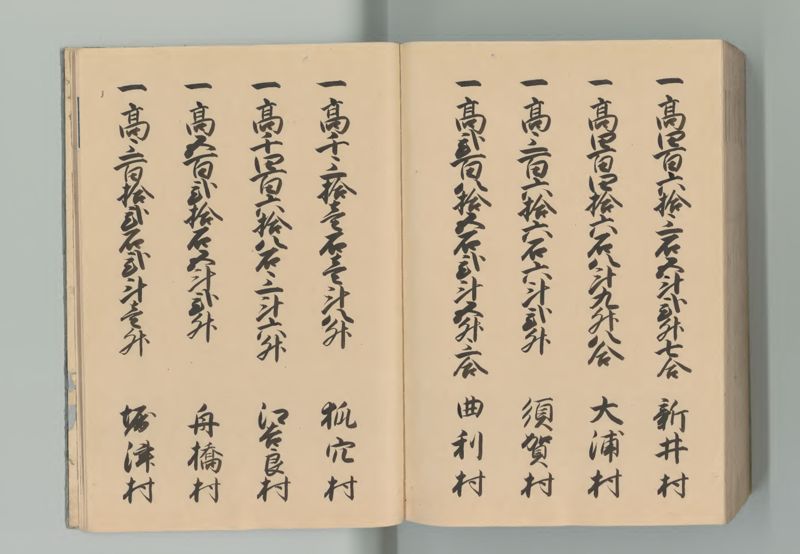 一高四百六拾三石五斗弐升七合 新井村
一高四百四拾六石八斗九升八合 大浦村
一高三百六拾六石六斗弐升 須賀村
一高弐百八拾五石弐斗五升三合 曲利村
一高千三拾壱石壱斗八升 狐穴村
一高千四百六拾八石三斗六升 江吉良村
一高五百弐拾石五斗弐升 舟橋村
一高三百拾弐石弐斗壱升 堀津村